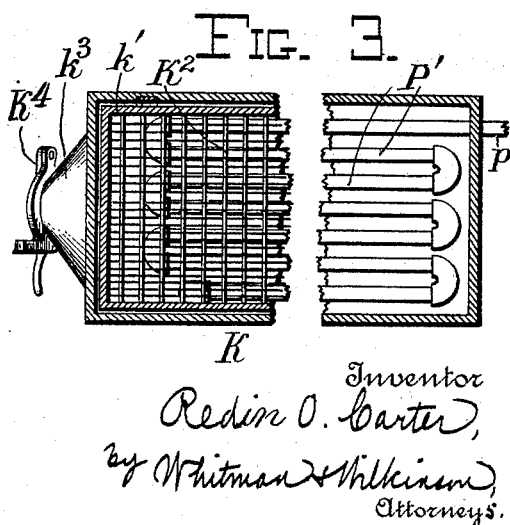 FIG. 3.
k³ k' K² P'
K⁴
p
K
Inventor
Redin O. Carter,
by Whitman & Wilkinson,
Attorneys.